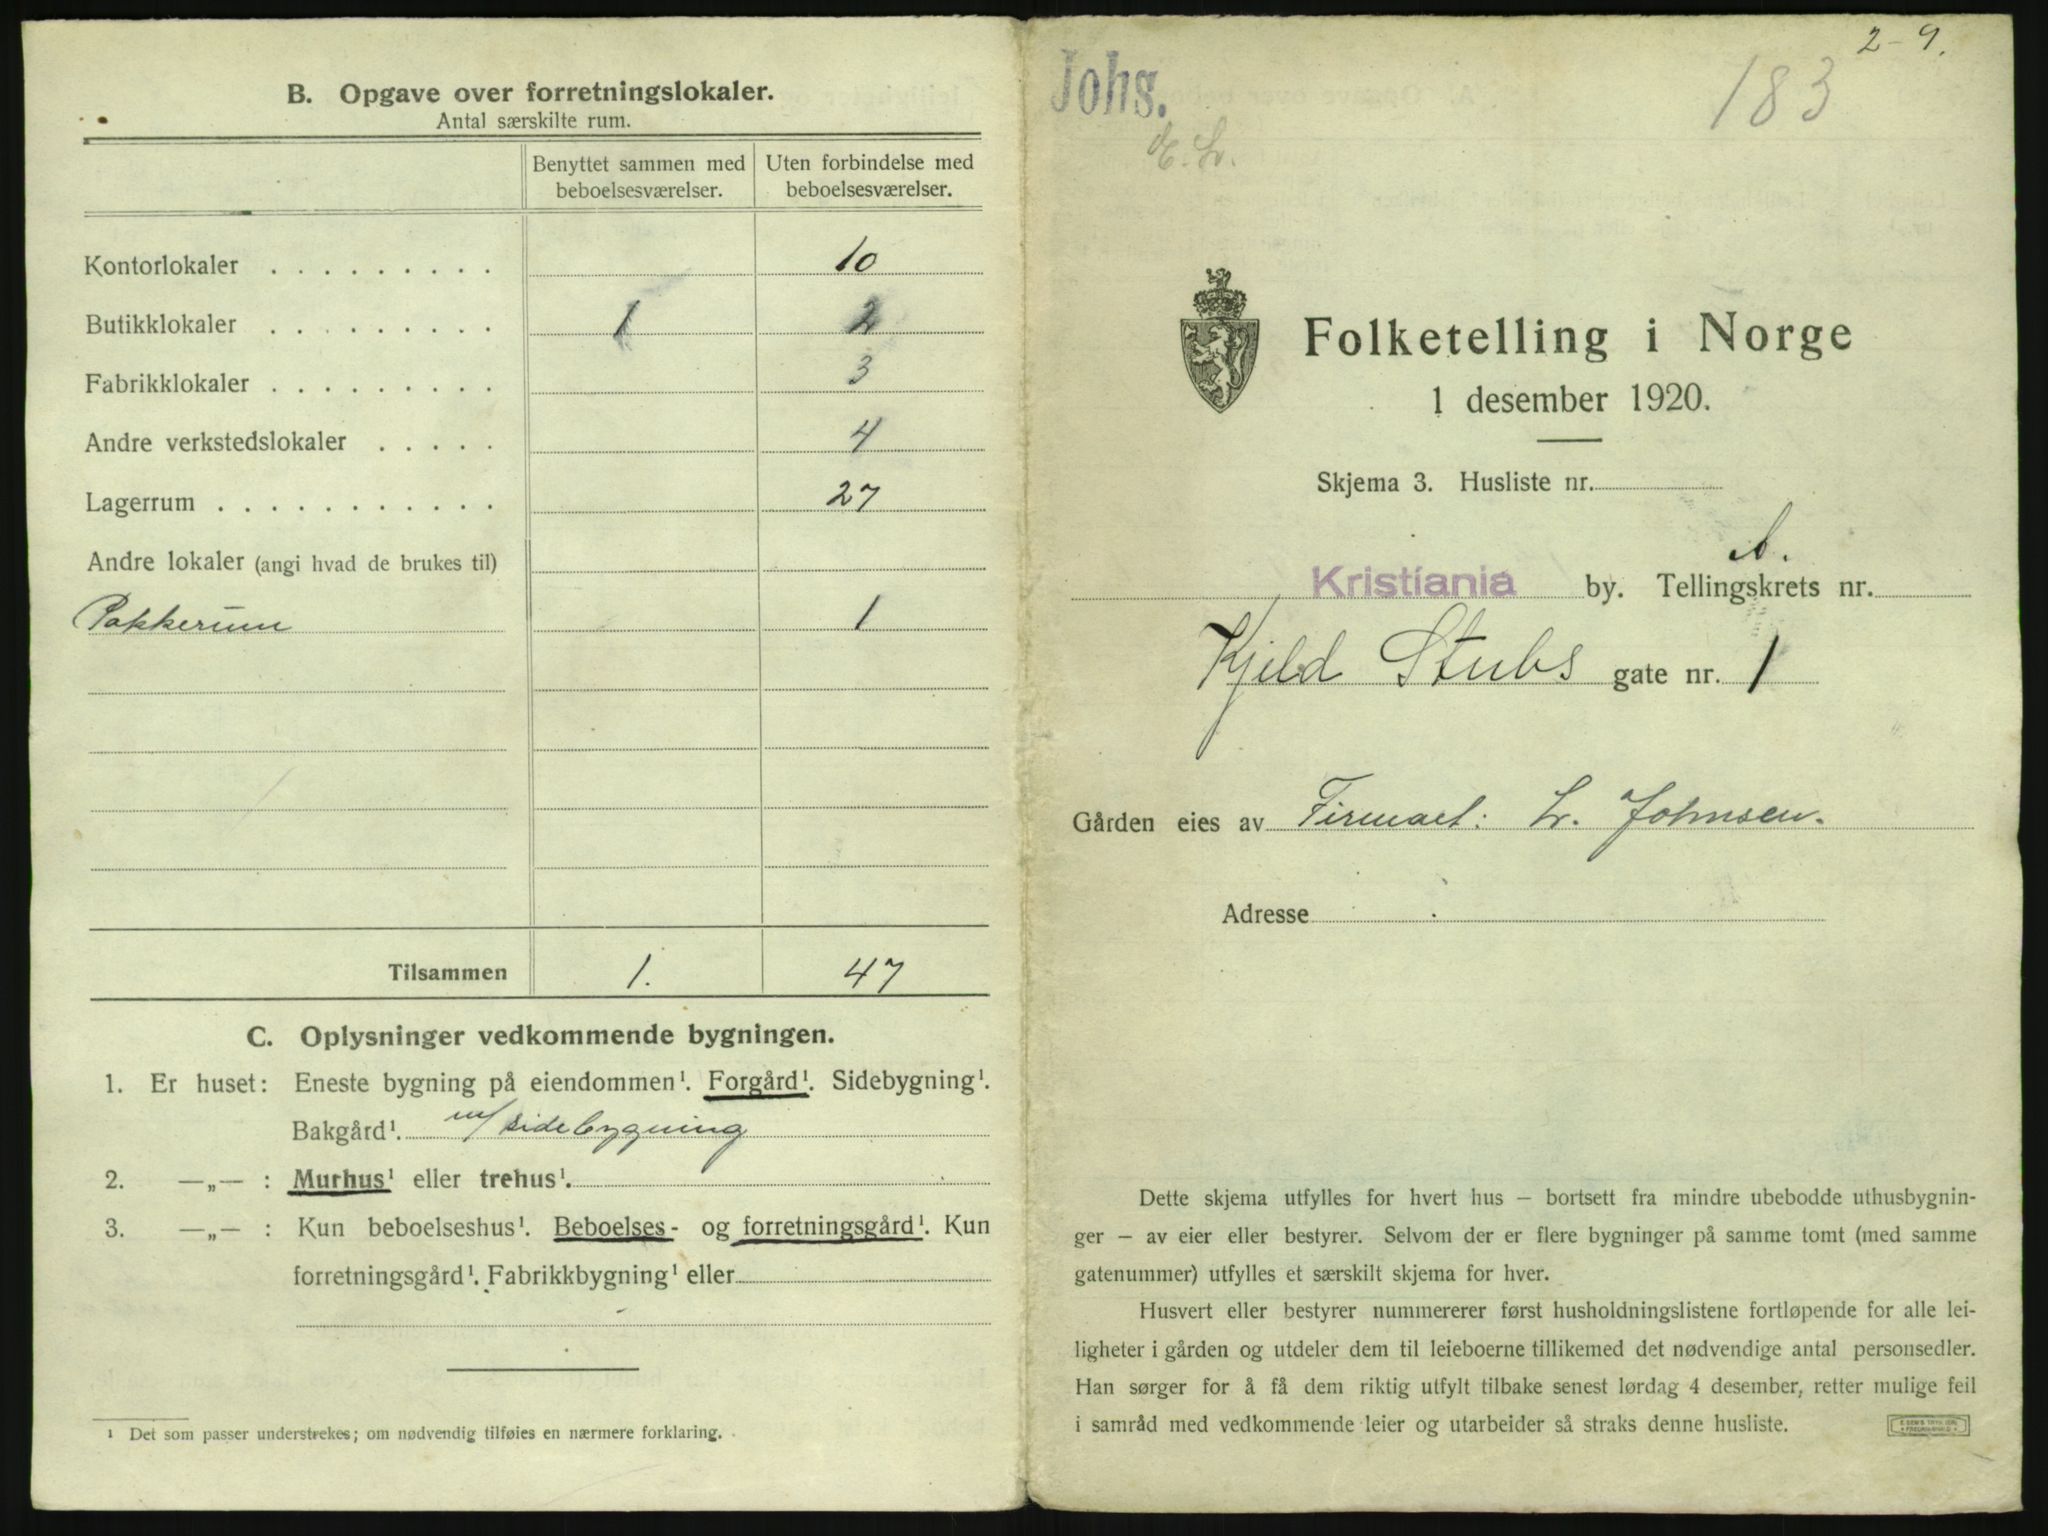 B. Opgave over forretningslokaler.
Antal særskilte rum.
Benyttet sammen med beboelsesværelser.
Uten forbindelse med beboelsesværelser.
Kontorlokaler . . . . . . . . . 10
Butikklokaler . . . . . . . . . 1 2
Fabrikklokaler . . . . . . . . . 3
Andre verkstedslokaler . . . . . 4
Lagerrum . . . . . . . . . . . 27
Andre lokaler (angi hvad de brukes til)
Pakkerum 1
Tilsammen 1. 47
C. Oplysninger vedkommende bygningen.
1. Er huset: Eneste bygning på eiendommen¹. Forgård¹. Sidebygning¹.
Bakgård¹. m/ sidebygning
2. —„— : Murhus¹ eller trehus¹.
3. —„— : Kun beboelseshus¹. Beboelses- og forretningsgård¹. Kun
forretningsgård¹. Fabrikkbygning¹ eller
¹ Det som passer understrekes; om nødvendig tilføies en nærmere forklaring.
2-9.
Johs.
183
Folketelling i Norge
1 desember 1920.
Skjema 3. Husliste nr.
A.
Kristiania by. Tellingskrets nr.
Kjeld Stubs gate nr. 1
Gården eies av Firmaet: L. Johnsen.
Adresse
Dette skjema utfylles for hvert hus – bortsett fra mindre ubebodde uthusbygnin-
ger – av eier eller bestyrer. Selvom der er flere bygninger på samme tomt (med samme
gatenummer) utfylles et særskilt skjema for hver.
Husvert eller bestyrer nummererer først husholdningslistene fortløpende for alle lei-
ligheter i gården og utdeler dem til leieboerne tillikemed det nødvendige antal personsedler.
Han sørger for å få dem riktig utfylt tilbake senest lørdag 4 desember, retter mulige feil
i samråd med vedkommende leier og utarbeider så straks denne husliste.